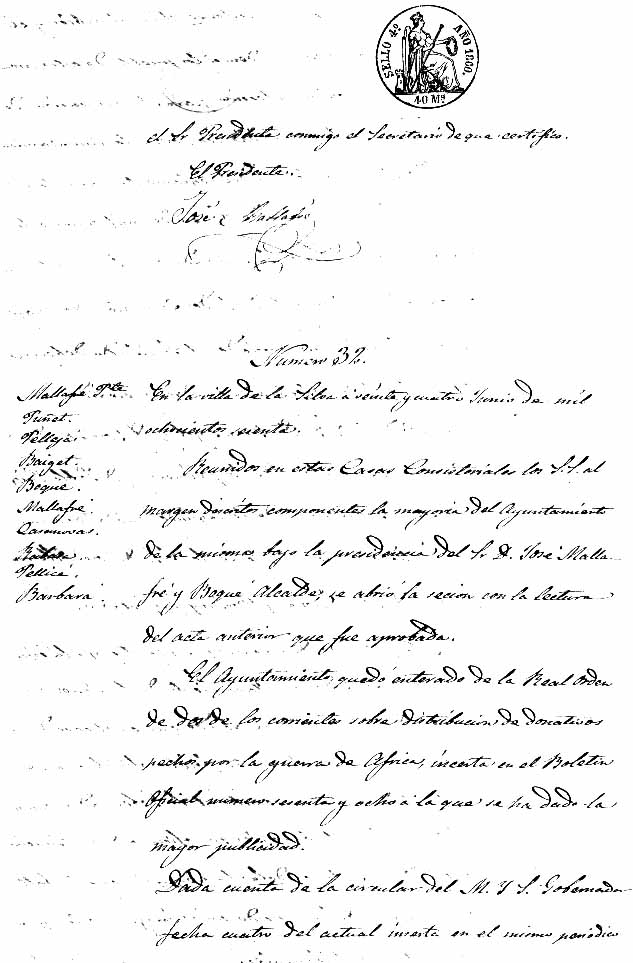 SELLO 4º AÑO 1860.
40 Mˢ
el Sr Presidente conmigo el Secretario de que certifico.
El Presidente.
José Mallafré
Numero 32.
Mallafré Pte
Puñet.
Pellejá
Baiget
Boqué.
Mallafré
Casanovas.
Pellicé.
Barbará
En la villa de la Selva á veinte y cuatro Junio de mil
ochocientos sesenta.
Reunidos en estas Casas Consistoriales los S.S. al
margen descritos componentes la mayoria del Ayuntamiento
de la misma bajo la presidencia del Sr D. José Malla
fré y Boqué Alcalde, se abrió la secion con la lectura
del acta anterior que fue aprobada.
El Ayuntamiento quedó enterado de la Real orden
de dos de los corrientes sobre distribucion de donativos
hechos por la guerra de Africa, incerta en el Boletin
Oficial numero sesenta y ocho á la que se ha dado la
mayor publicidad.
Dada cuenta de la circular del M. Y S. Gobernador
fecha cuatro del actual incerta en el mismo periodico